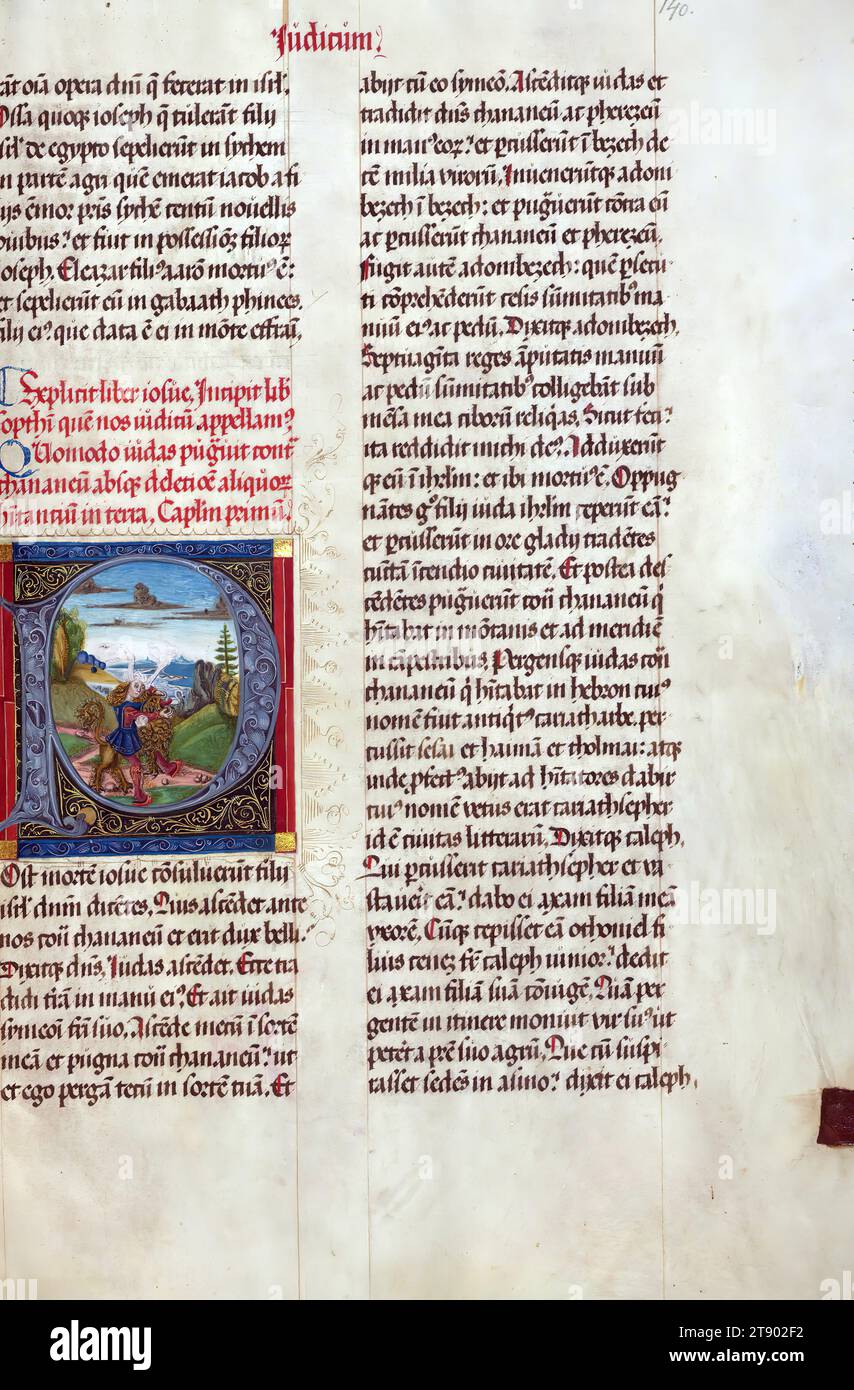 140.
Iudicum
rāt oīa opera dn̄i q̄ fecerat in isrl̄.
Ossa quoqꝫ ioseph q̄ tulerāt filij
isrl̄ de egypto sepelierūt in sychem
in partē agri quē emerat iacob a fi
lijs ēmor pris̄ sychē centū nouellis
ouibus? et fiut in possessiōꝫ filioꝝ
ioseph. Eleazar fili9 aarō mortu9 ē:
et sepelierūt eū in gabaath phinees
filij ei9? que data ē ei in mōte effraī.
Explicit liber iosue. Incipit lib̄
sopthī quē nos iudicū appellam9?
Quomodo iudas pugauit cont̄
chananeū absqꝫ deletiōe aliquoꝝ
hītantiū in terra. Caplm̄ primū?
Post mortē iosue cōsuluerūt filij
isrl̄ dnm̄ dicētes. Quis ascēdet ante
nos cōt̄ chananeū et erit dux belli?
Dixitqꝫ dn̄s. Iudas ascēdet. Ecce tra
didi t̄rā in manu ei9? Et ait iudas
symeoī fr̄i suo. Ascēde mecū ī sortē
meā et pugna cōt̄ chananeū? ut
et ego pergā tecū in sortē tuā. Et
abijt cū eo symeō. Ascēditqꝫ iudas et
tradidit dn̄s chananeū ac pherezeū
in man9 eoꝝ? et ꝑcusserūt ī bezech de
cē milia viroꝝ. Inueneruntqꝫ adoni
bezech ī bezech: et pugnerūt cōtra eū
ac ꝑcusserūt chananeū et pherezeū.
Fugit autē adonibezech: quē ꝑsecu
ti cōprehēderūt cesis sūmitatib9 ma
nuū ei9 ac pedū. Dixitqꝫ adonibezech.
Septuagīta reges āputatis manuū
ac pedū sūmitatib9 colligebāt sub
mēsa mea ciborū reliqias. Sicut feci?
ita reddidit michi de9? Adduxerūt
qꝫ eū ī ihrlm̄: et ibi mortu9 ē. Oppug
nātes g° filij iuda ihrlm̄ ceperūt eā?
et ꝑcusserūt in ore gladij tradētes
cūctā īcendio ciuitatē. Et postea des
cēdētes pugnerūt cōt̄ chananeū q̄
hītabat in mōtanis et ad meridiē
in cāpestribus. Pergensqꝫ iudas cōt̄
chananeū q̄ hītabat in hebron cui9
nomē fiut antiqit9 cariatharbe. per
cussit sesai et haimā et tholmai: atqꝫ
inde ꝓfect9 abijt ad hītatores dabir
cui9 nomē vetus erat cariathsepher
id ē ciuitas litterarū. Dixitqꝫ caleph.
Qui ꝑcusserit cariathsepher et va
stauerit eā? dabo ei axam filiā meā
vxorē. Cūqꝫ cepisset eā othoniel fi
lius cenez fr̄ caleph iunior? dedit
ei axam filiā suā cōiugē. Quā per
gentē in itinere monuit vir su9? ut
petēt a pr̄e suo agrū. Que cū suspi
rasset sedēs in asino? dixit ei caleph.
alamy
Image ID: 2T902F2
www.alamy.com